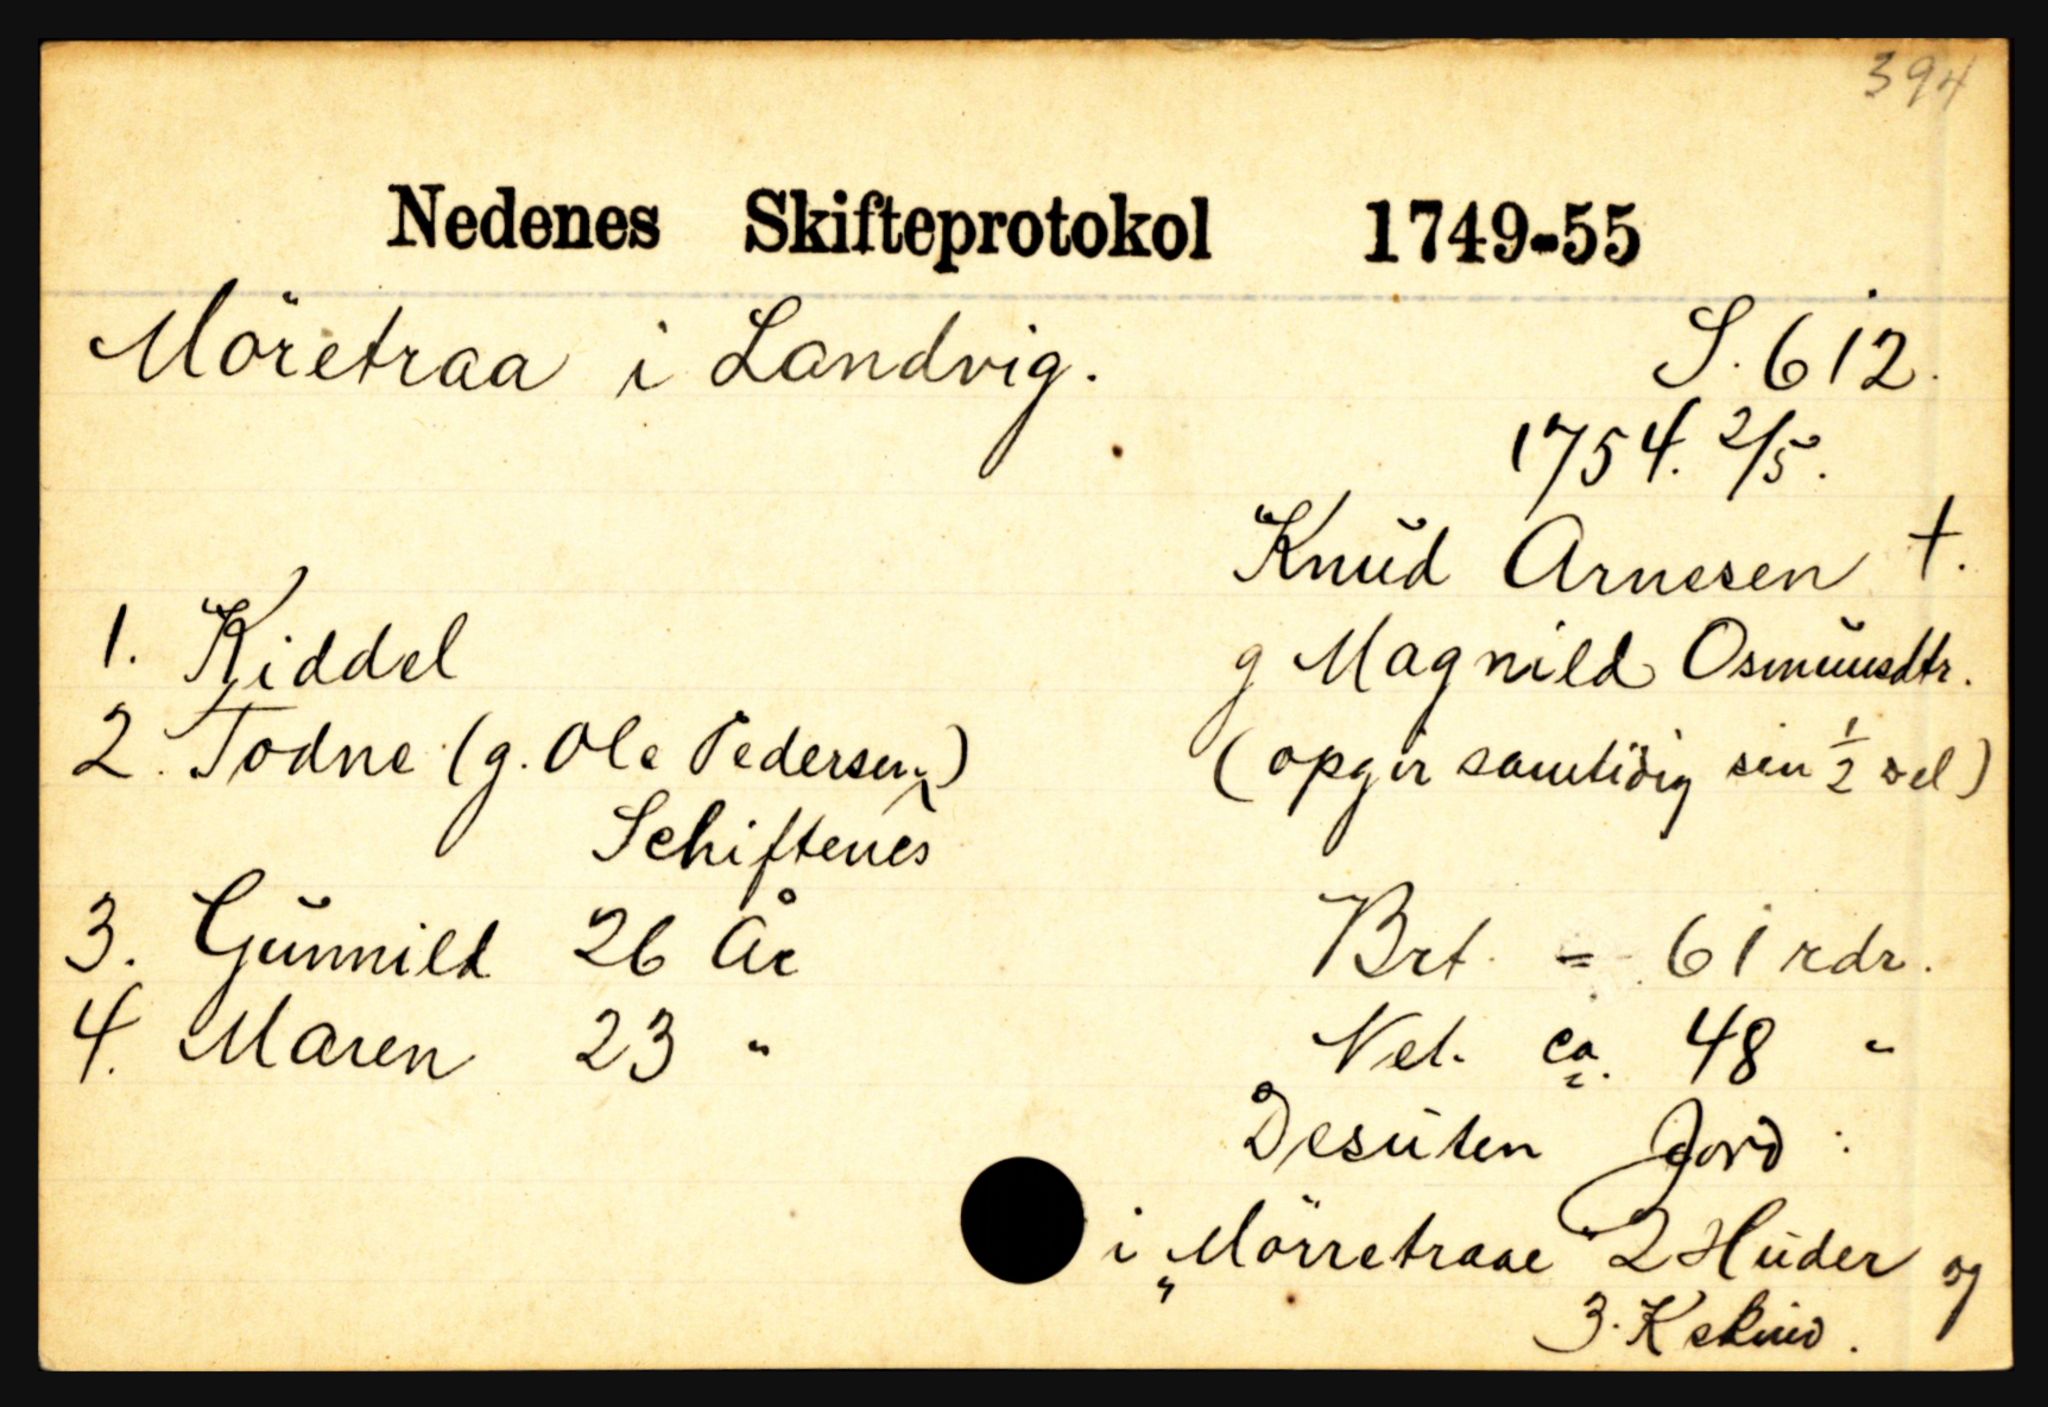 394
Nedenes Skifteprotokol 1749-55
Möretraa i Landvig.
S. 612.
1754. 2/5.
Knud Arnesen †.
g Magnild Osmundsdtr.
(opgir samtidig sin 1/2 del)
1. Kiddel
2. Todne (g. Ole Pedersen)
Schiftenes
3. Gunnild 26 År
4. Maren 23 "
Brt. = 61 rdr.
Net. ca. 48 "
Desuten Jord:
i "Mörretraae" 2 Huder og
3. Kskind.